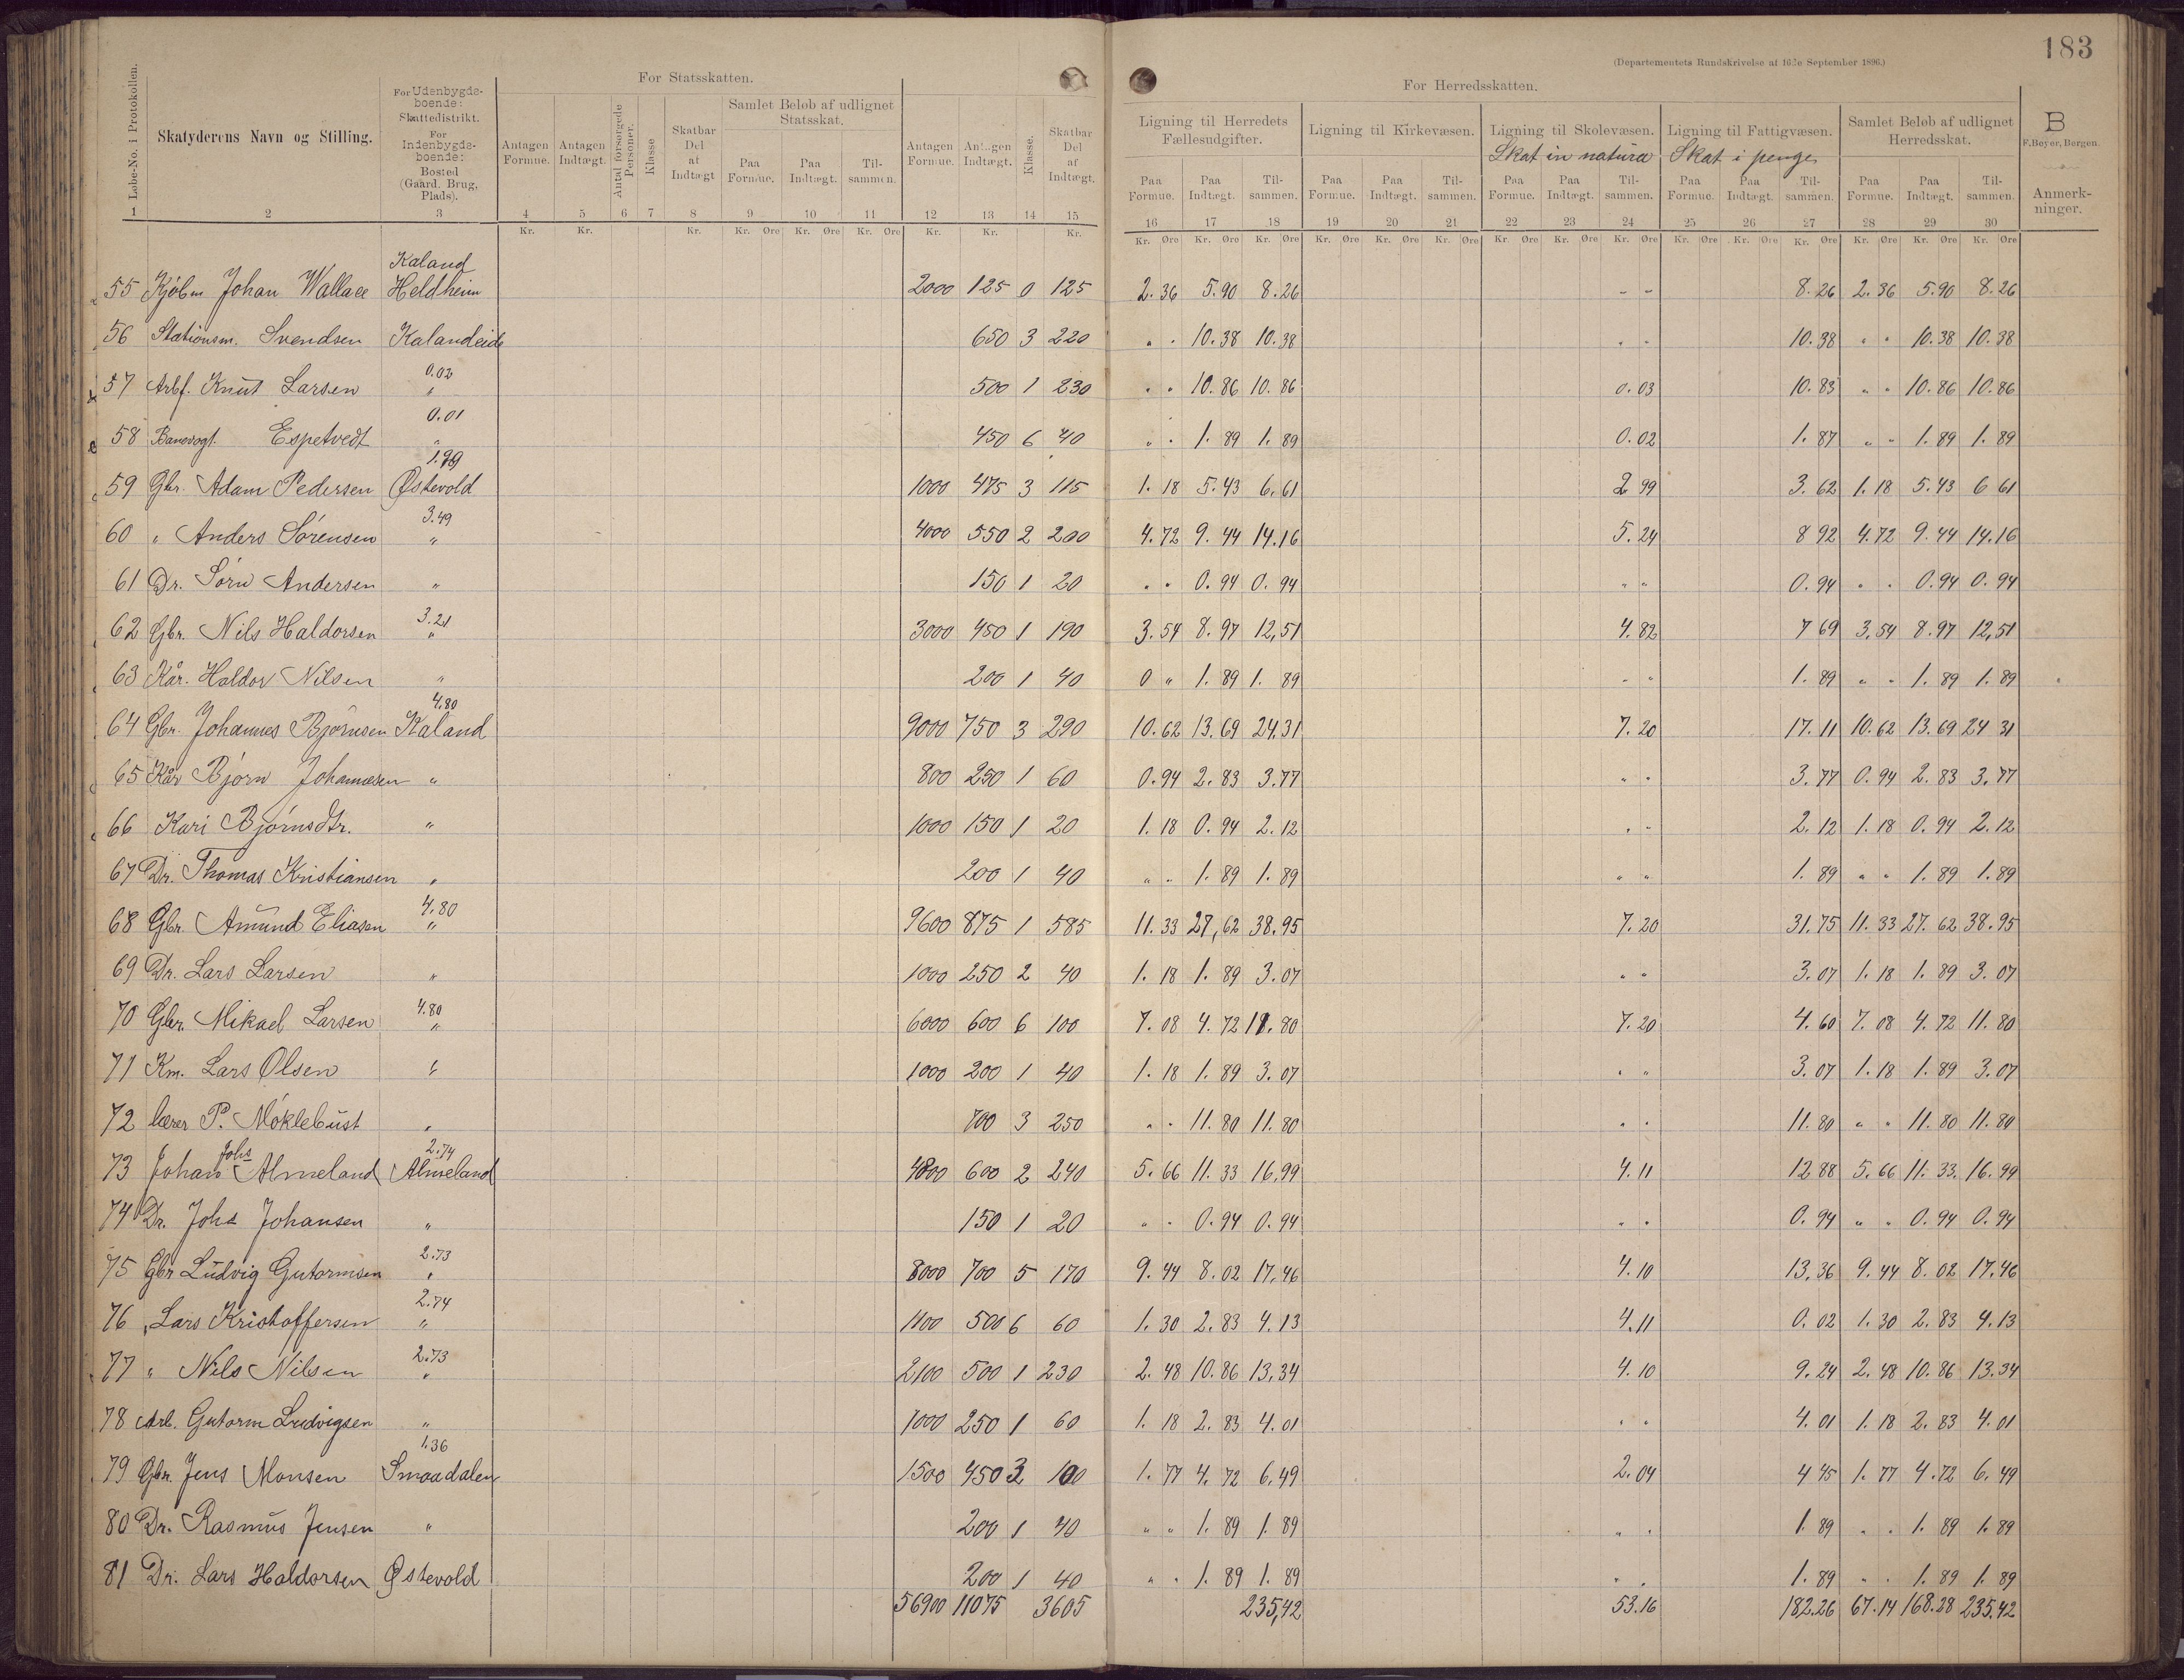 183
(Departementets Rundskrivelse af 16de September 1896.)
For Statsskatten. For Herredsskatten.
Løbe-No. i Protokollen. Skatyderens Navn og Stilling. For Udenbygds-boende: Skattedistrikt. For Indenbygds-boende: Bosted (Gaard, Brug, Plads).
Antagen Formue. Antagen Indtægt. Antal forsørgede Personer. Klasse Skatbar Del af Indtægt
Samlet Beløb af udlignet Statsskat. Paa Formue. Paa Indtægt. Til-sammen.
Antagen Formue. Antagen Indtægt. Klasse. Skatbar Del af Indtægt.
Ligning til Herredets Fællesudgifter. Paa Formue. Paa Indtægt. Til-sammen.
Ligning til Kirkevæsen. Paa Formue. Paa Indtægt. Til-sammen.
Ligning til Skolevæsen. Skat in natura Paa Formue. Paa Indtægt. Til-sammen.
Ligning til Fattigvæsen. Skat i penge Paa Formue. Paa Indtægt. Til-sammen.
Samlet Beløb af udlignet Herredsskat. Paa Formue. Paa Indtægt. Til-sammen.
B
F. Beyer, Bergen.
Anmerk-ninger.
1 2 3 4 5 6 7 8 9 10 11 12 13 14 15 16 17 18 19 20 21 22 23 24 25 26 27 28 29 30
Kr. Kr. Kr. Kr. Øre Kr. Øre Kr. Øre Kr. Kr. Kr. Kr. Øre Kr. Øre Kr. Øre Kr. Øre Kr. Øre Kr. Øre Kr. Øre Kr. Øre Kr. Øre Kr. Øre Kr. Øre Kr. Øre Kr. Øre Kr. Øre Kr. Øre
Kaland
55 Kjøbm Johan Wallace Heldheim 2000 125 0 125 2.36 5.90 8.26 - - 8.26 2.36 5.90 8.26
56 Stationsm. Svendsen Kalandeide 650 3 220 " " 10.38 10.38 " " 10.38 " " 10.38 10.38
0.02
57 Arbf. Knut Larsen " 500 1 230 " " 10.86 10.86 0.03 10.83 " " 10.86 10.86
0.01
58 Banevogt. Espetvedt " 450 6 40 " " 1.89 1.89 0.02 1.87 " " 1.89 1.89
1.99
59 Gbr. Adam Pedersen Østevold 1000 475 3 115 1.18 5.43 6.61 2 99 3.62 1.18 5.43 6 61
3.49
60 " Anders Sørensen " 4000 550 2 200 4.72 9.44 14.16 5.24 8 92 4.72 9.44 14.16
61 Dr. Sørn Andersen " 150 1 20 " " 0.94 0.94 " " 0.94 " " 0.94 0.94
3.21
62 Gbr. Nils Haldorsen " 3000 450 1 190 3.54 8.97 12,51 4.82 7 69 3,54 8.97 12,51
63 Kår. Haldor Nilsen " 200 1 40 0 " 1.89 1.89 " " 1.89 " " 1.89 1.89
4.80
64 Gbr. Johannes Bjørnsen Kaland 9000 750 3 290 10.62 13.69 24.31 7.20 17.11 10.62 13.69 24 31
65 Kår Bjørn Johannesen " 800 250 1 60 0.94 2.83 3.77 " " 3.77 0.94 2.83 3.77
66 Kari Bjørnsdtr. " 1000 150 1 20 1.18 0.94 2.12 " " 2.12 1.18 0.94 2.12
67 Dr. Thomas Kristiansen " 200 1 40 " " 1.89 1.89 " " 1.89 " " 1.89 1.89
4.80
68 Gbr. Amund Eliasen " 9600 875 1 585 11.33 27,62 38.95 7.20 31.75 11.33 27.62 38.95
69 Dr. Lars Larsen " 1000 250 2 40 1.18 1.89 3.07 " " 3.07 1.18 1.89 3.07
4.80
70 Gbr. Mikael Larsen " 6000 600 6 100 7.08 4.72 11.80 7.20 4.60 7.08 4.72 11.80
71 Km. Lars Olsen " 1000 200 1 40 1.18 1.89 3.07 " " 3.07 1.18 1.89 3.07
72 lærer P. Møklebust " 700 3 250 " " 11.80 11.80 " " 11.80 " " 11.80 11.80
Johs 2.74
73 Johan Almeland Almeland 4800 600 2 240 5.66 11.33 16,99 4.11 12 88 5.66 11.33. 16.99
74 Dr. Johs Johansen " 150 1 20 " " 0.94 0.94 " " 0.94 " " 0.94 0.94
2.73
75 Gbr Ludvig Gutormsen " 8000 700 5 170 9.44 8.02 17,46 4.10 13,36 9.44 8.02 17,46
2.74
76 " Lars Kristoffersen " 1100 500 6 60 1.30 2.83 4.13 4.11 0.02 1.30 2.83 4.13
2.73
77 " Nils Nilsen " 2100 500 1 230 2.48 10.86 13,34 4.10 9.24 2.48 10.86 13.34
78 Arb. Gutorm Ludvigsen " 1000 250 1 60 1.18 2.83 4.01 " " 4.01 1.18 2.83 4.01
1.36
79 Gbr. Jens Monsen Smaadalen 1500 450 3 100 1.77 4.72 6,49 2.04 4 45 1.77 4.72 6.49
80 Dr. Rasmus Jensen " 200 1 40 " " 1.89 1.89 " " 1.89 " " 1.89 1.89
81 Dr. Lars Haldorsen Østevold 200 1 40 " " 1.89 1.89 " " 1.89 " " 1.89 1.89
56900 11075 3605 235,42 53.16 182.26 67.14 168.28 235.42